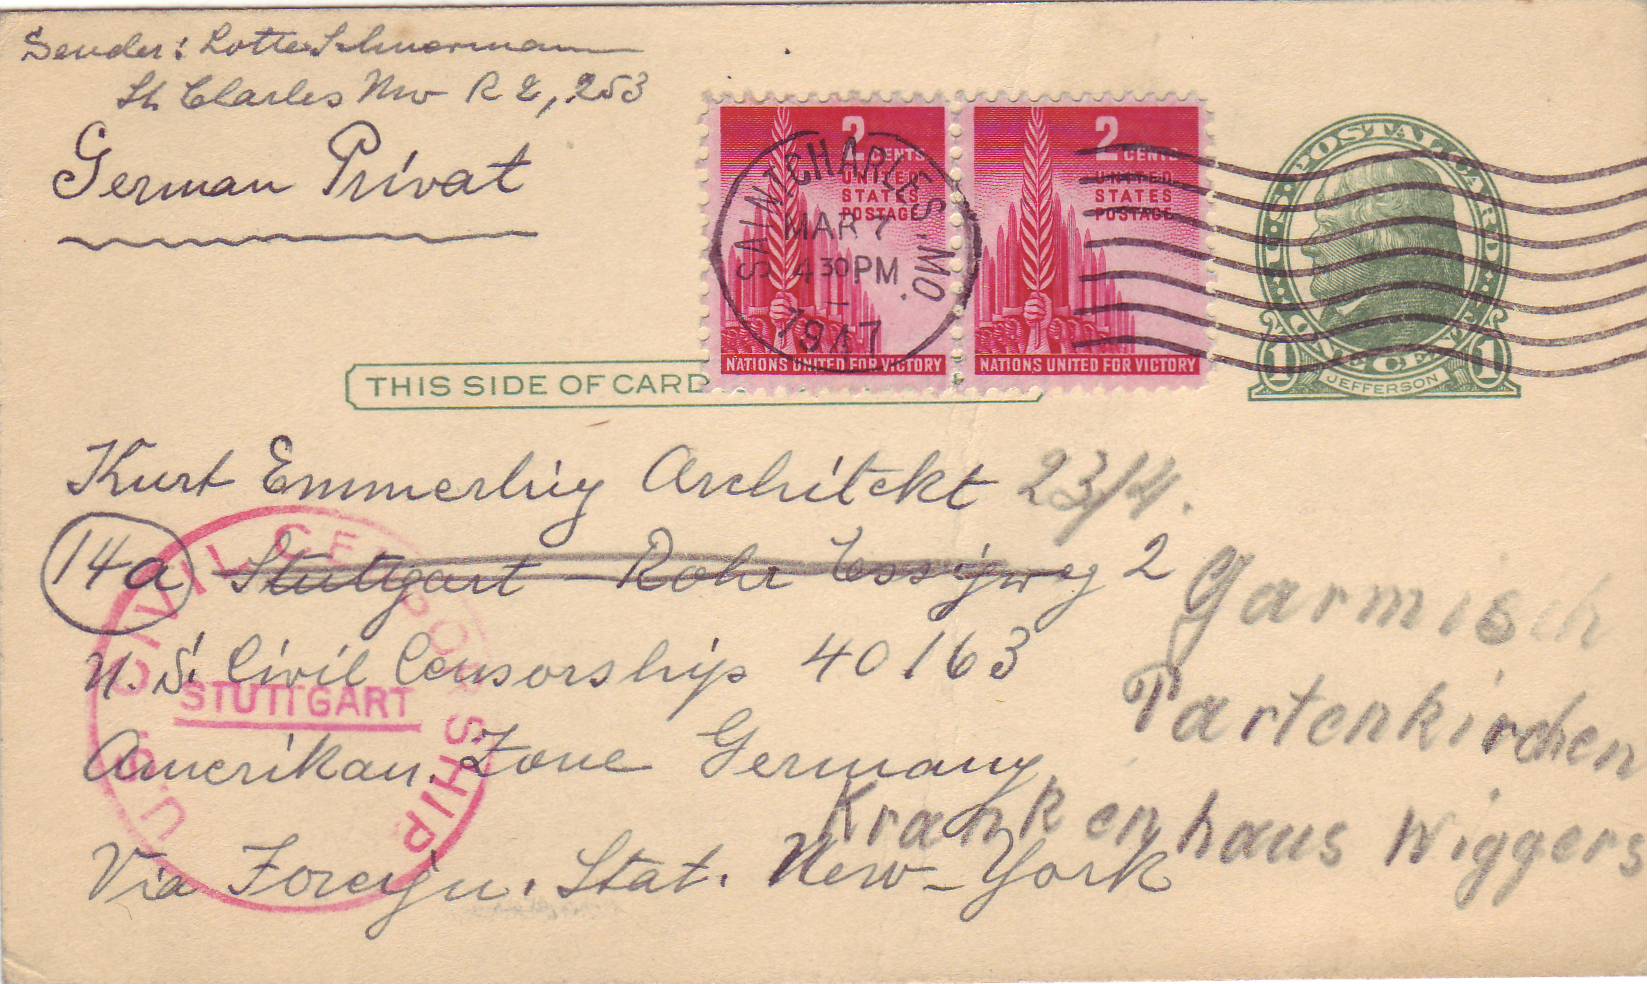 Sender: Lotte Schuermann
St. Charles Mo R 2, 253
German Privat
2 CENTS
UNITED
STATES
POSTAGE
NATIONS UNITED FOR VICTORY
2 CENTS
UNITED
STATES
POSTAGE
NATIONS UNITED FOR VICTORY
SAINT CHARLES, MO.
MAR 7
4 30 PM
1947
U.S. POSTAL CARD
1 CENT 1
JEFFERSON
THIS SIDE OF CARD
Kurt Emmerling Architekt 23/4.
14a Stuttgart - Rohr Essigweg 2
U.S. Civil Censorship 40163
Amerikan. Zone Germany
Via Foreign. Stat. New-York
Garmisch
Partenkirchen
Krankenhaus Wiggers
U.S. CIVIL CENSORSHIP
STUTTGART